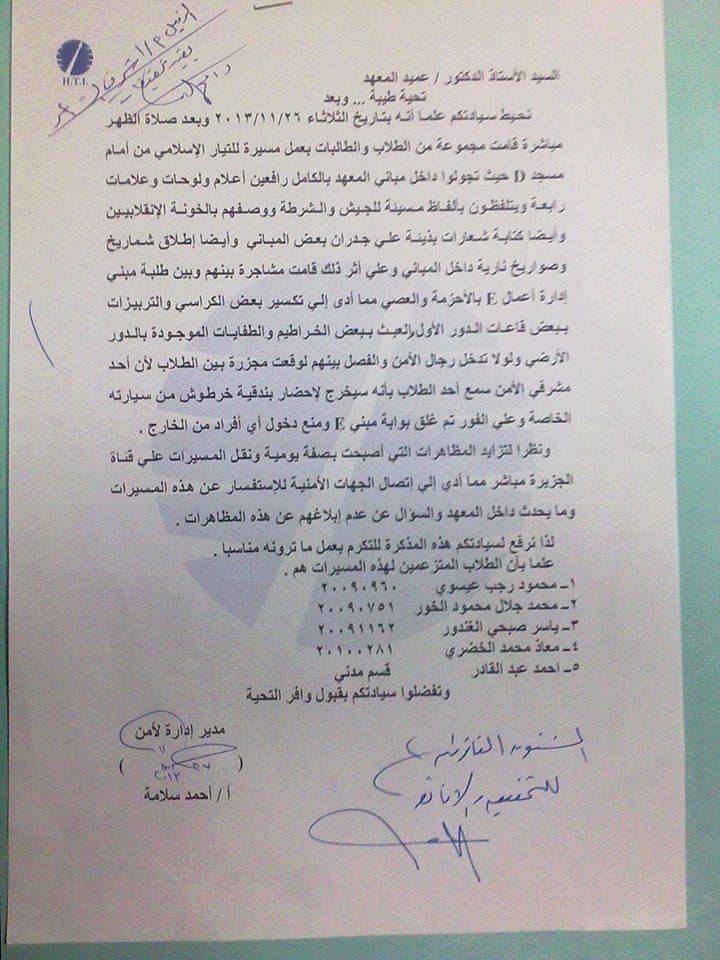 H.T.I.
السيد الأستاذ الدكتور / عميد المعهد
تحية طيبة ... وبعد
نحيط سيادتكم علما أنه بتاريخ الثلاثاء ٢٠١٣/١١/٢٦ وبعد صلاة الظهر
مباشرة قامت مجموعة من الطلاب والطالبات بعمل مسيرة للتيار الإسلامي من أمام
مسجد D حيث تجولوا داخل مباني المعهد بالكامل رافعين أعلام ولوحات وعلامات
رابعة ويتلفظون بألفاظ مسيئة للجيش والشرطة ووصفهم بالخونة الإنقلابيين
وأيضا كتابة شعارات بذيئة علي جدران بعض المباني وأيضا إطلاق شماريخ
وصواريخ نارية داخل المباني وعلي أثر ذلك قامت مشاجرة بينهم وبين طلبة مبني
إدارة أعمال E بالأحزمة والعصي مما أدى إلي تكسير بعض الكراسي والتربيزات
ببعض قاعات الدور الأول, العبث ببعض الخراطيم والطفايات الموجودة بالدور
الأرضي ولولا تدخل رجال الأمن والفصل بينهم لوقعت مجزرة بين الطلاب لأن أحد
مشرفي الأمن سمع أحد الطلاب بأنه سيخرج لإحضار بندقية خرطوش من سيارته
الخاصة وعلي الفور تم غلق بوابة مبني E ومنع دخول أي أفراد من الخارج .
ونظرا لتزايد المظاهرات التي أصبحت بصفة يومية ونقل المسيرات علي قناة
الجزيرة مباشر مما أدي إلي إتصال الجهات الأمنية للإستفسار عن هذه المسيرات
وما يحدث داخل المعهد والسؤال عن عدم إبلاغهم عن هذه المظاهرات .
لذا نرفع لسيادتكم هذه المذكرة للتكرم بعمل ما ترونه مناسبا .
علما بأن الطلاب المتزعمين لهذه المسيرات هم .
١- محمود رجب عيسوي ٢٠٠٩٠٩٦٠
٢- محمد جلال محمود الخور ٢٠٠٩٠٧٥١
٣- ياسر صبحي الغندور ٢٠٠٩١١٦٢
٤- معاذ محمد الخضري ٢٠١٠٠٢٨١
٥- احمد عبد القادر قسم مدني
وتفضلوا سيادتكم بقبول وافر التحية
مدير إدارة لأمن
( )
أ / أحمد سلامة
الشئون القانونية
للتحقيق والإفادة